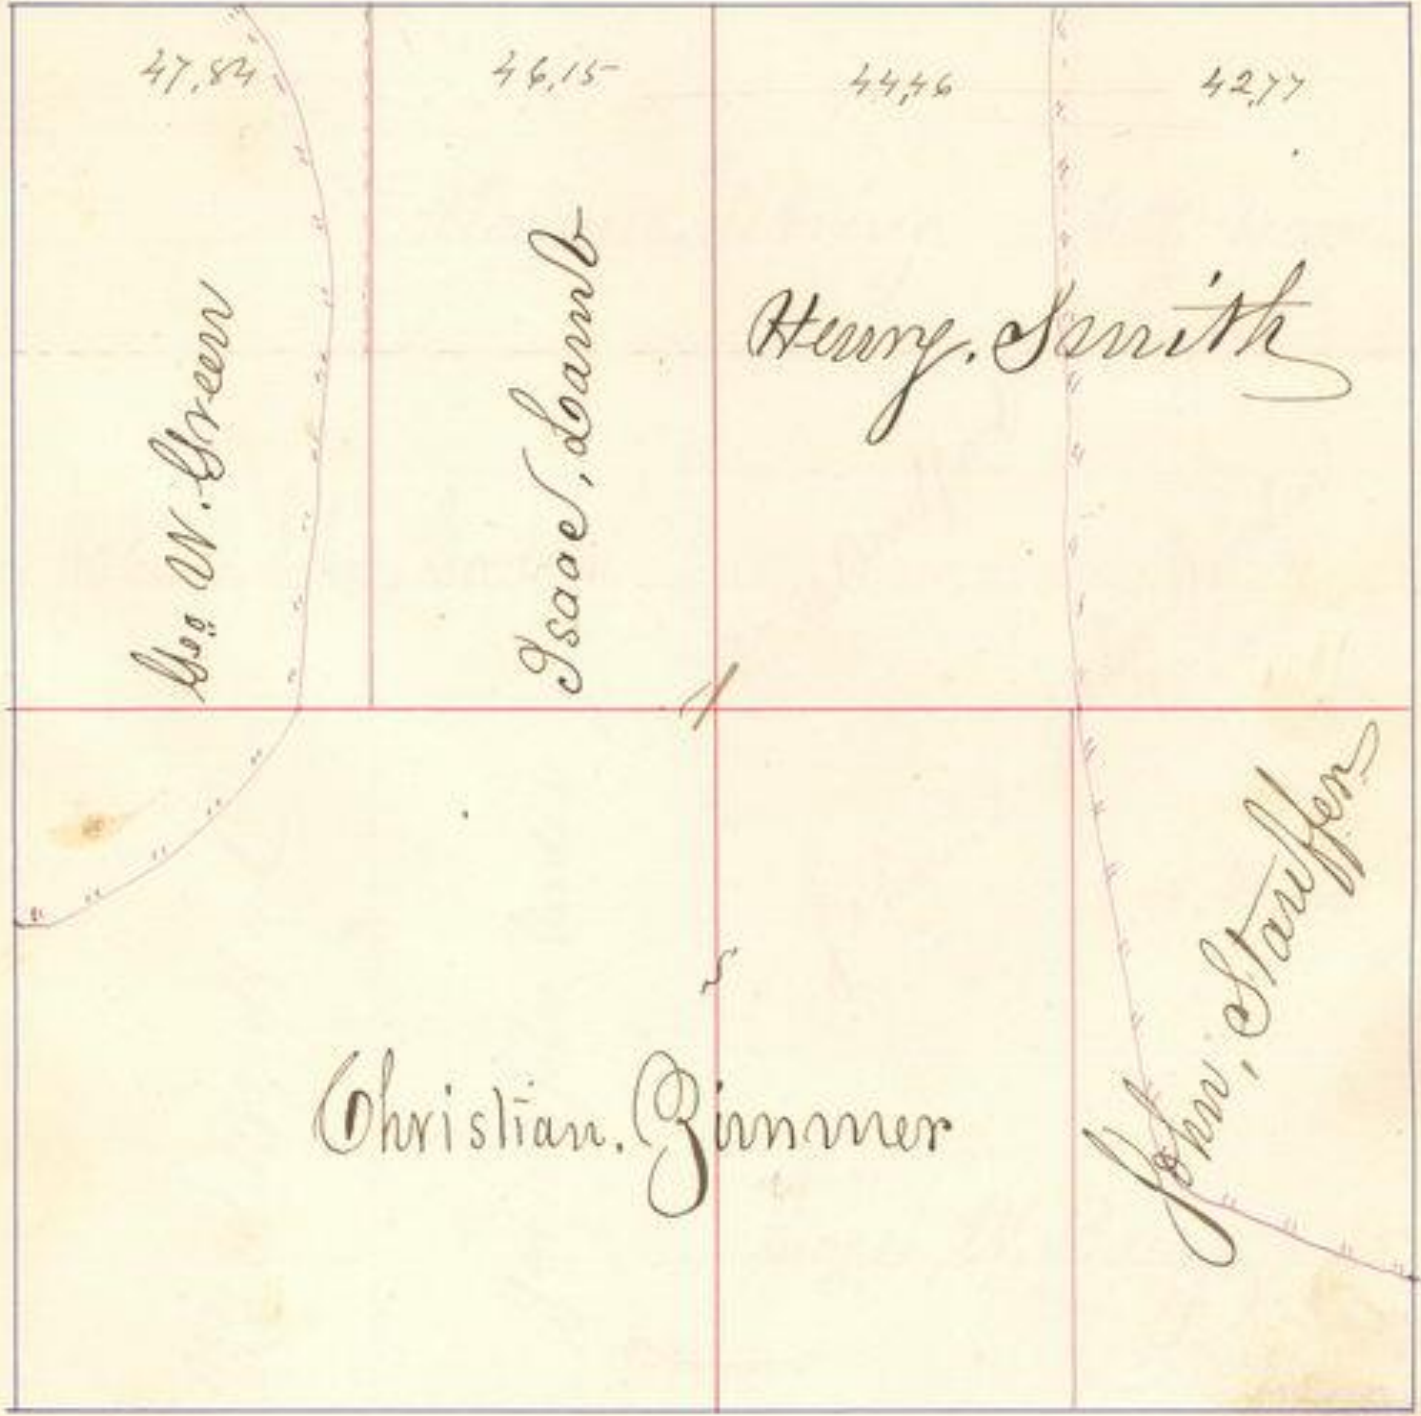 47,84
46,15
44,46
42,77
Geo W. Green
Isaac, Lamb
Henry. Smith
1
Christian. Zimmer
John, Stauffer